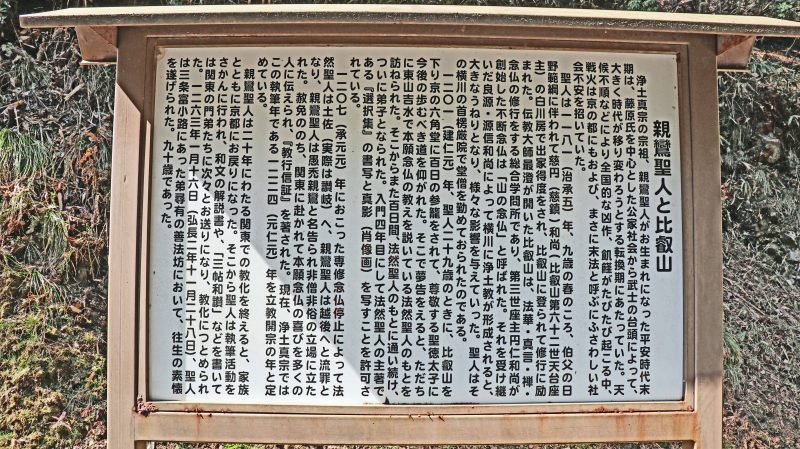 親鸞聖人と比叡山
浄土真宗の宗祖、親鸞聖人がお生まれになった平安時代末
期は、藤原氏を中心とした公家社会から武士の台頭によって、
大きく時代が移り変わろうとする転換期にあたっていた。天
候不順などにより全国的な凶作、飢饉がたびたび起こる中、
戦火は京の都にもおよび、まさに末法と呼ぶにふさわしい社
会不安を招いていた。
聖人は一一八一（治承五）年、九歳の春のころ、伯父の日
野範綱に伴われて慈円（慈鎮）和尚（比叡山第六十二世天台座
主）の白川房で出家得度をされ、比叡山に登られて修行に励
まれた。伝教大師最澄が開いた比叡山は、法華・真言・禅・
念仏の修行をする総合学問所であり、第三世座主円仁和尚が
創始した不断念仏は「山の念仏」と呼ばれた。それを受け継
いだ良源・源信和尚によって横川に浄土教が形成されると、
大きなうねりとなり、様々な影響を与えていった。聖人はそ
の横川の首楞厳院で堂僧を勤めておられたのである。
一二〇一（建仁元）年、聖人二十九歳のときに、比叡山を
下り京の六角堂に百日の参籠をされて、尊敬する聖徳太子に
今後の歩むべき道を仰がれた。そこで夢告をえると、ただち
に東山吉水で本願念仏の教えを説いている法然聖人のもとを
訪ねられた。そこからまた百日間、法然聖人のもとに通い続け、
ついに弟子となられた。入門四年目にして法然聖人の主著で
ある『選択集』の書写と真影（肖像画）を写すことを許可さ
れている。
一二〇七（承元元）年におこった専修念仏停止によって法
然聖人は土佐（実際は讃岐）へ、親鸞聖人は越後へと流罪と
なり、親鸞聖人は愚禿親鸞と名告られ非僧非俗の立場に立た
れた。赦免ののち、関東に赴かれて本願念仏の喜びを多くの
人に伝えられ、『教行信証』を著された。現在、浄土真宗では
この執筆年である一二二四（元仁元）年を立教開宗の年と定
めている。
親鸞聖人は二十年にわたる関東での教化を終えると、家族
とともに京都にお戻りになった。そこから聖人は執筆活動を
さかんに行われ、和文の解説書や、「三帖和讃」などを書いて
は関東の門弟たちに次々とお送りになり、教化につとめられ
た。一二六三年一月十六日（弘長二年十一月二十八日）、聖人
は三条富小路にあった弟尋有の善法坊において、往生の素懐
を遂げられた。九十歳であった。